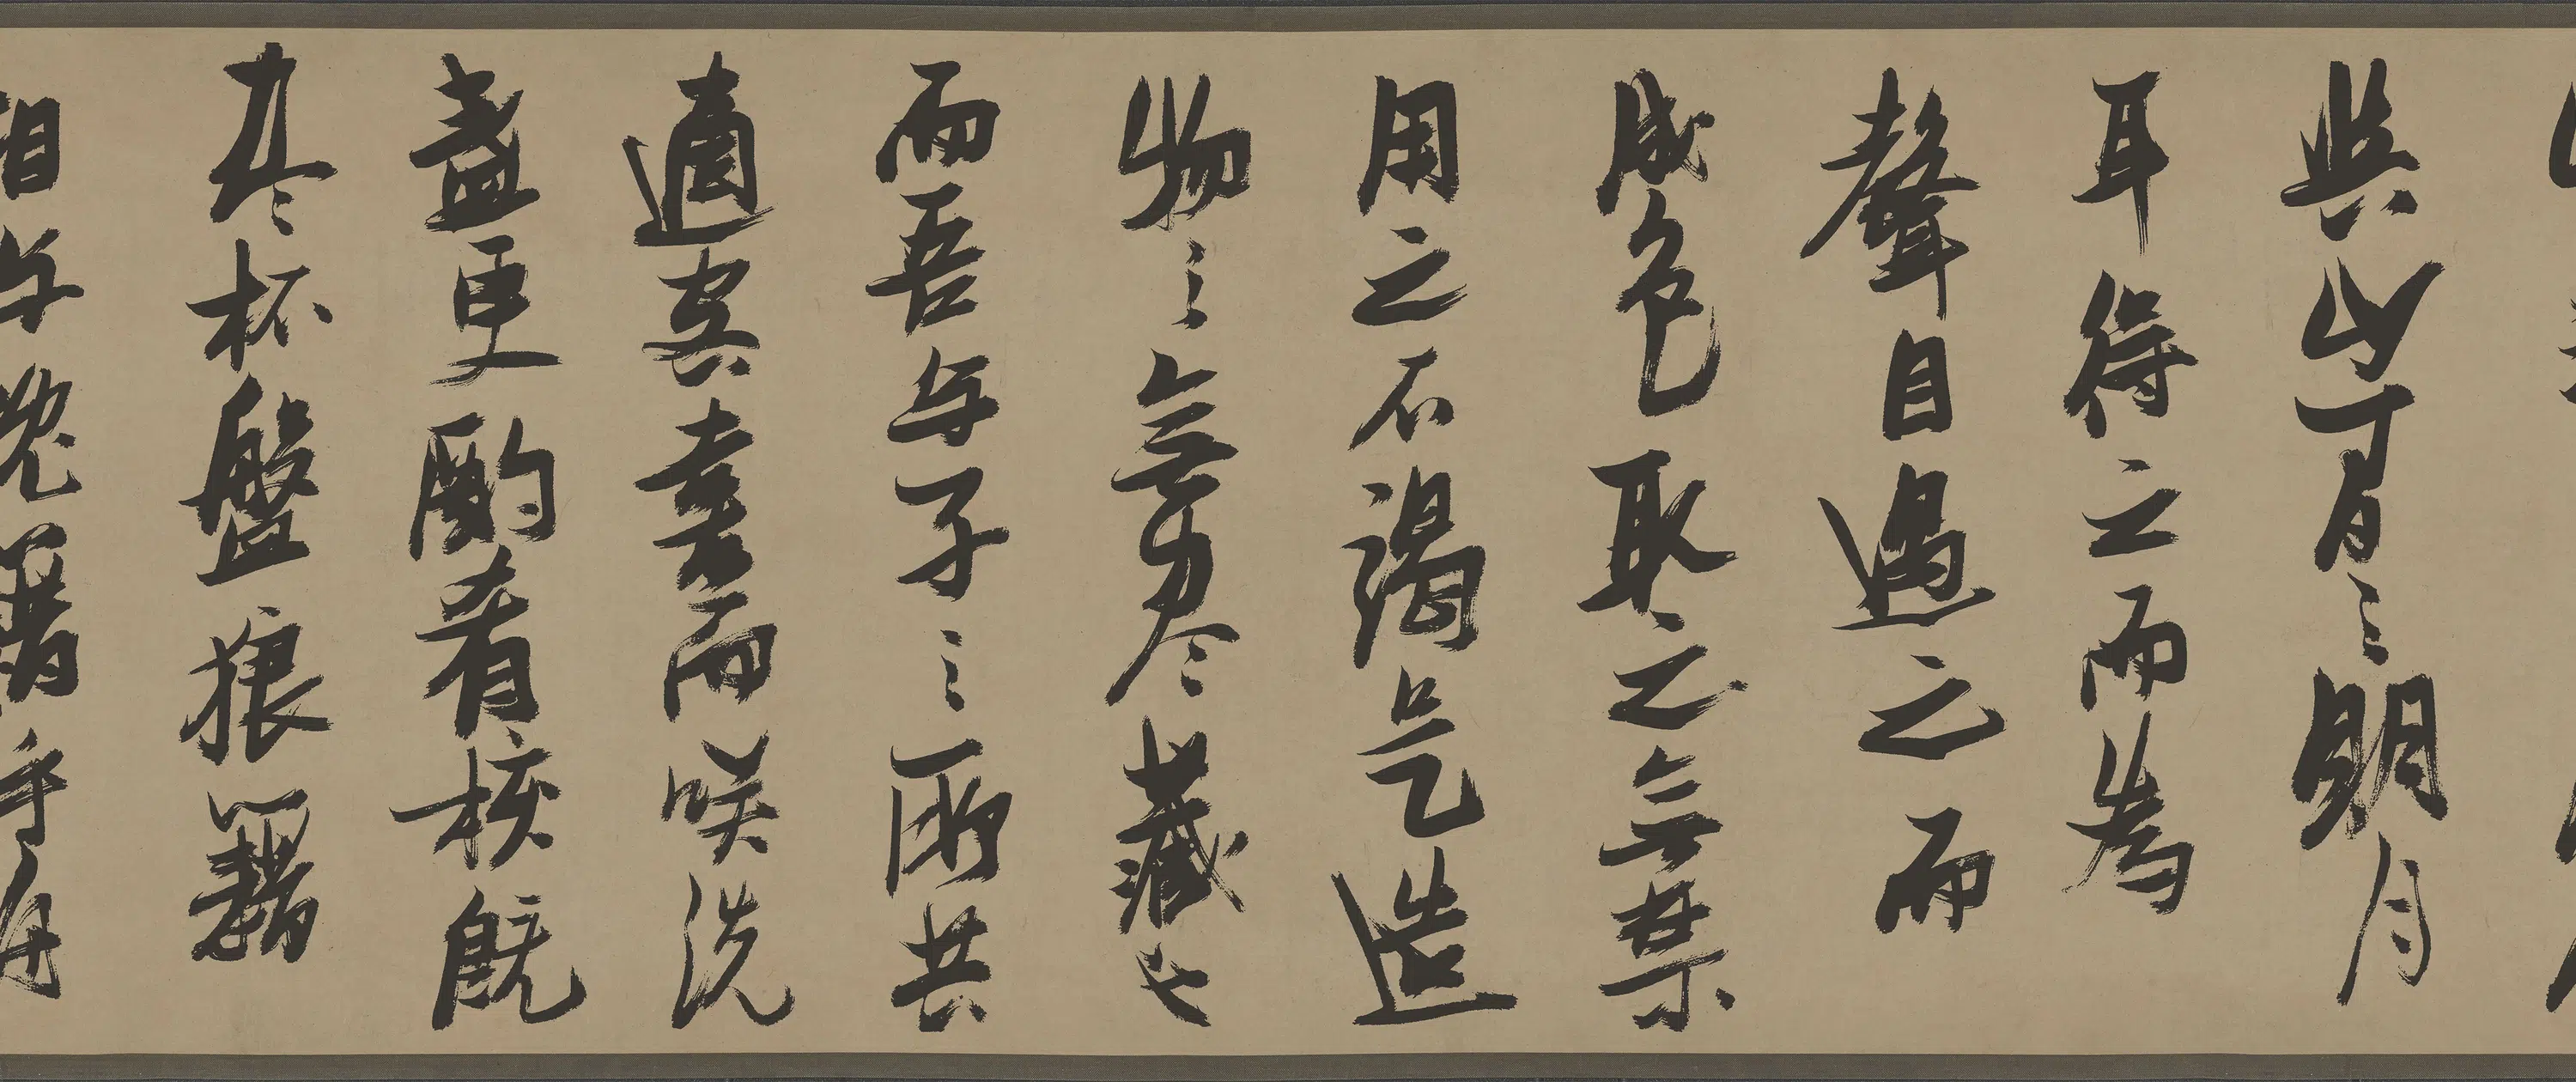 與山間之明月
耳得之而為
聲目遇之而
成色取之無禁
用之不竭是造
物之無盡藏也
而吾与子之所共
適客喜而咲洗
盞更酌肴核既
盡杯盤狼籍
相与枕藉乎舟